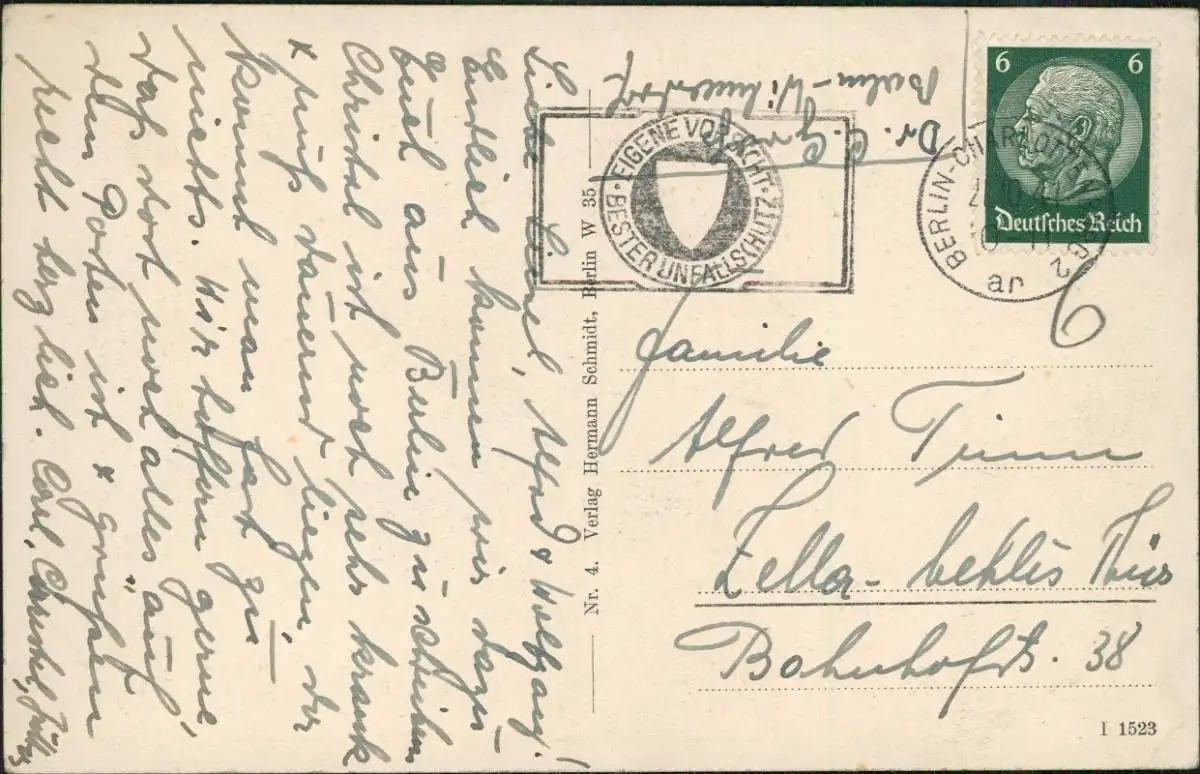 Liebe Liesel, Alfred & Wolfgang!
Endlich kommen wir dazu
Euch aus Berlin zu schreiben
Christel ist noch sehr krank
& muss dauernd liegen, da
kommt man fast zu
nichts. Wir hoffen gerne,
dass dort noch alles auf
dem Posten ist & grüssen
recht herzlich. Carl, Christel,
Dr. C.
Berlin-Wilmersdorf
EIGENE VORSICHT · BESTER UNFALLSCHUTZ ·
6 6
Deutsches Reich
BERLIN-CHARLOTTENBURG 2
ar
Nr. 4. Verlag Hermann Schmidt, Berlin W 35
Familie
Alfred Timm
Zella-Mehlis Thür
Bahnhofstr. 38
I 1523